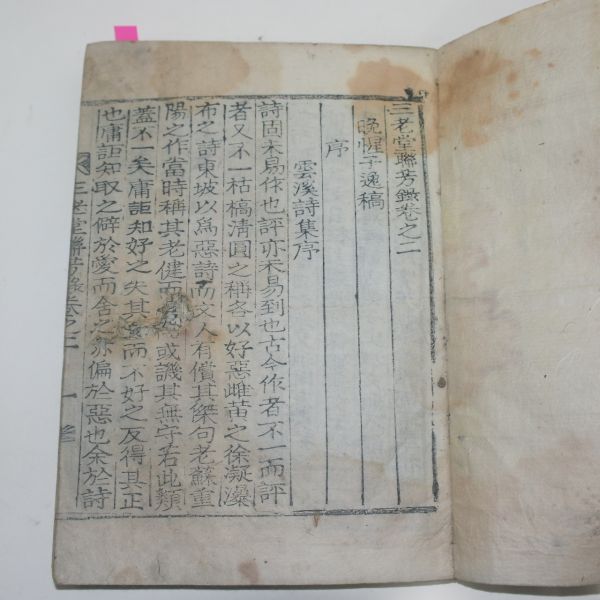 三老堂聯芳錄卷之二
晩惺子逸稿
序
雲溪詩集序
詩固未易作也評亦未易到也古今作者不一而評
者又不一枯槁淸圓之稱各以好惡雌黃之徐凝瀑
布之詩東坡以爲惡詩而文人有償其傑句老蘇重
陽之作當時稱其老健而或譏其無字若此類
蓋不一矣庸詎知好之失其而不好之反得其正
也庸詎知取之僻於愛而舍之亦偏於惡也余於詩
三老堂聯芳錄卷之二 一